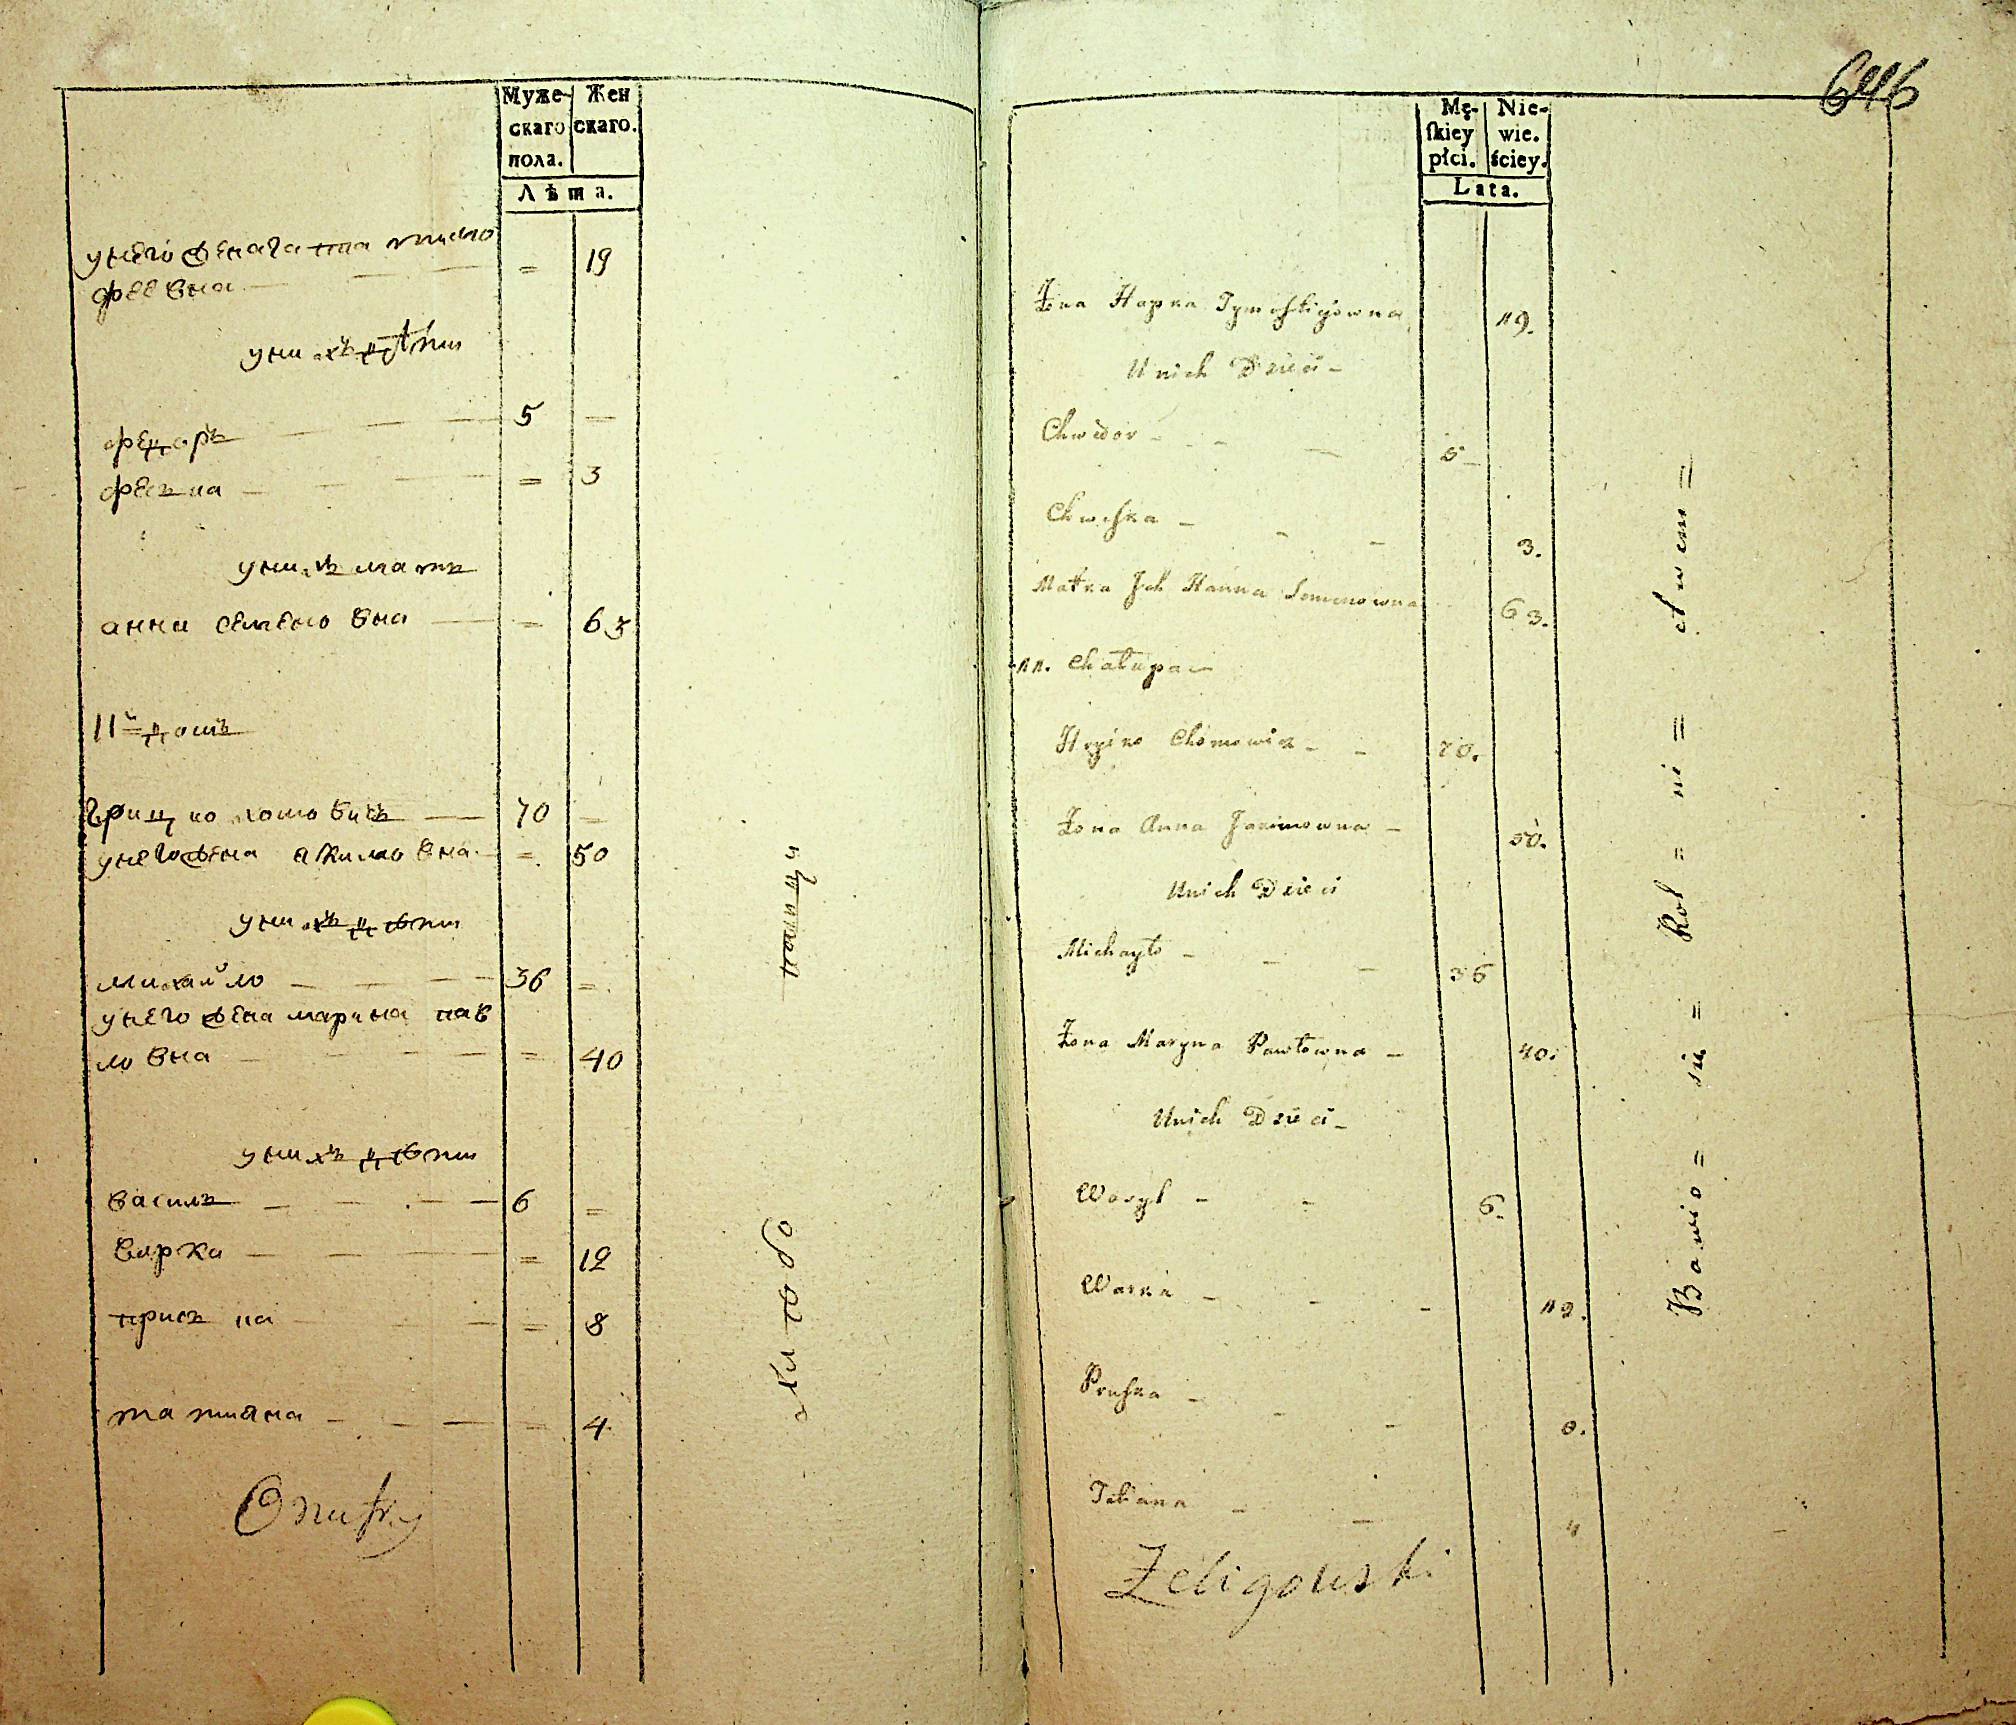 Муже- Жен
скаго скаго.
пола.
Лѣта.
унего жена гапка тимо
19
фѣевна
унихъ дѣти
федоръ 5
феська 3
унихъ мать
анна семеновна 63
11й домъ
Грицко хомовичъ 70
унего жена акимовна 50
унихъ дѣти
михайло 36
унего жена марина пав
ловна 40
унихъ дѣти
василь 6
варка 12
приська 8
татияна 4
Onufry
646
Mę- Nie-
ſkiey wie.
płci. ściey.
Lata.
Żona Hapka Tymoſzkiejowna 19.
Unich Dzieci
Chwedor 5
Chweſka 3.
Matka Jch Hanna Semenowna 63.
11. Chałupa
Hryćko Chomowicz 70.
Żona Anna Jakimowna 50.
Unich Dzieci
Michayło 36
Żona Maryna Pawłowna 40.
Unich Dzieci
Wasyl 6.
Warka 12.
Pruſka 8.
Tatiana 4
Zeligowski